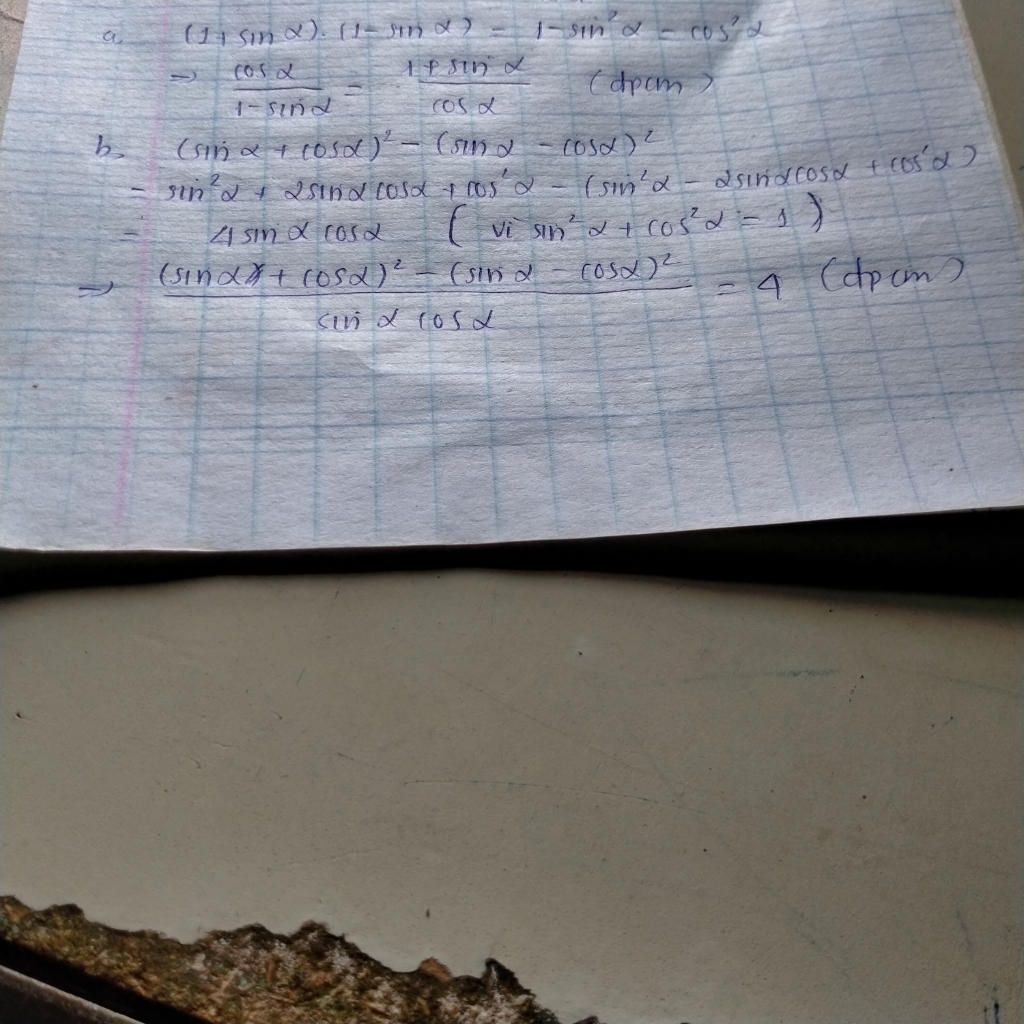 a, (1 + sin α). (1 - sin α) = 1 - sin² α = cos² α
⇒ cos α / 1 - sin α = 1 + sin α / cos α (đpcm)
b, (sin α + cos α)² - (sin α - cos α)²
= sin² α + 2 sin α cos α + cos² α - (sin² α - 2 sin α cos α + cos² α)
= 4 sin α cos α ( vì sin² α + cos² α = 1 )
⇒ (sin α + cos α)² - (sin α - cos α)² / sin α cos α = 4 (đpcm)